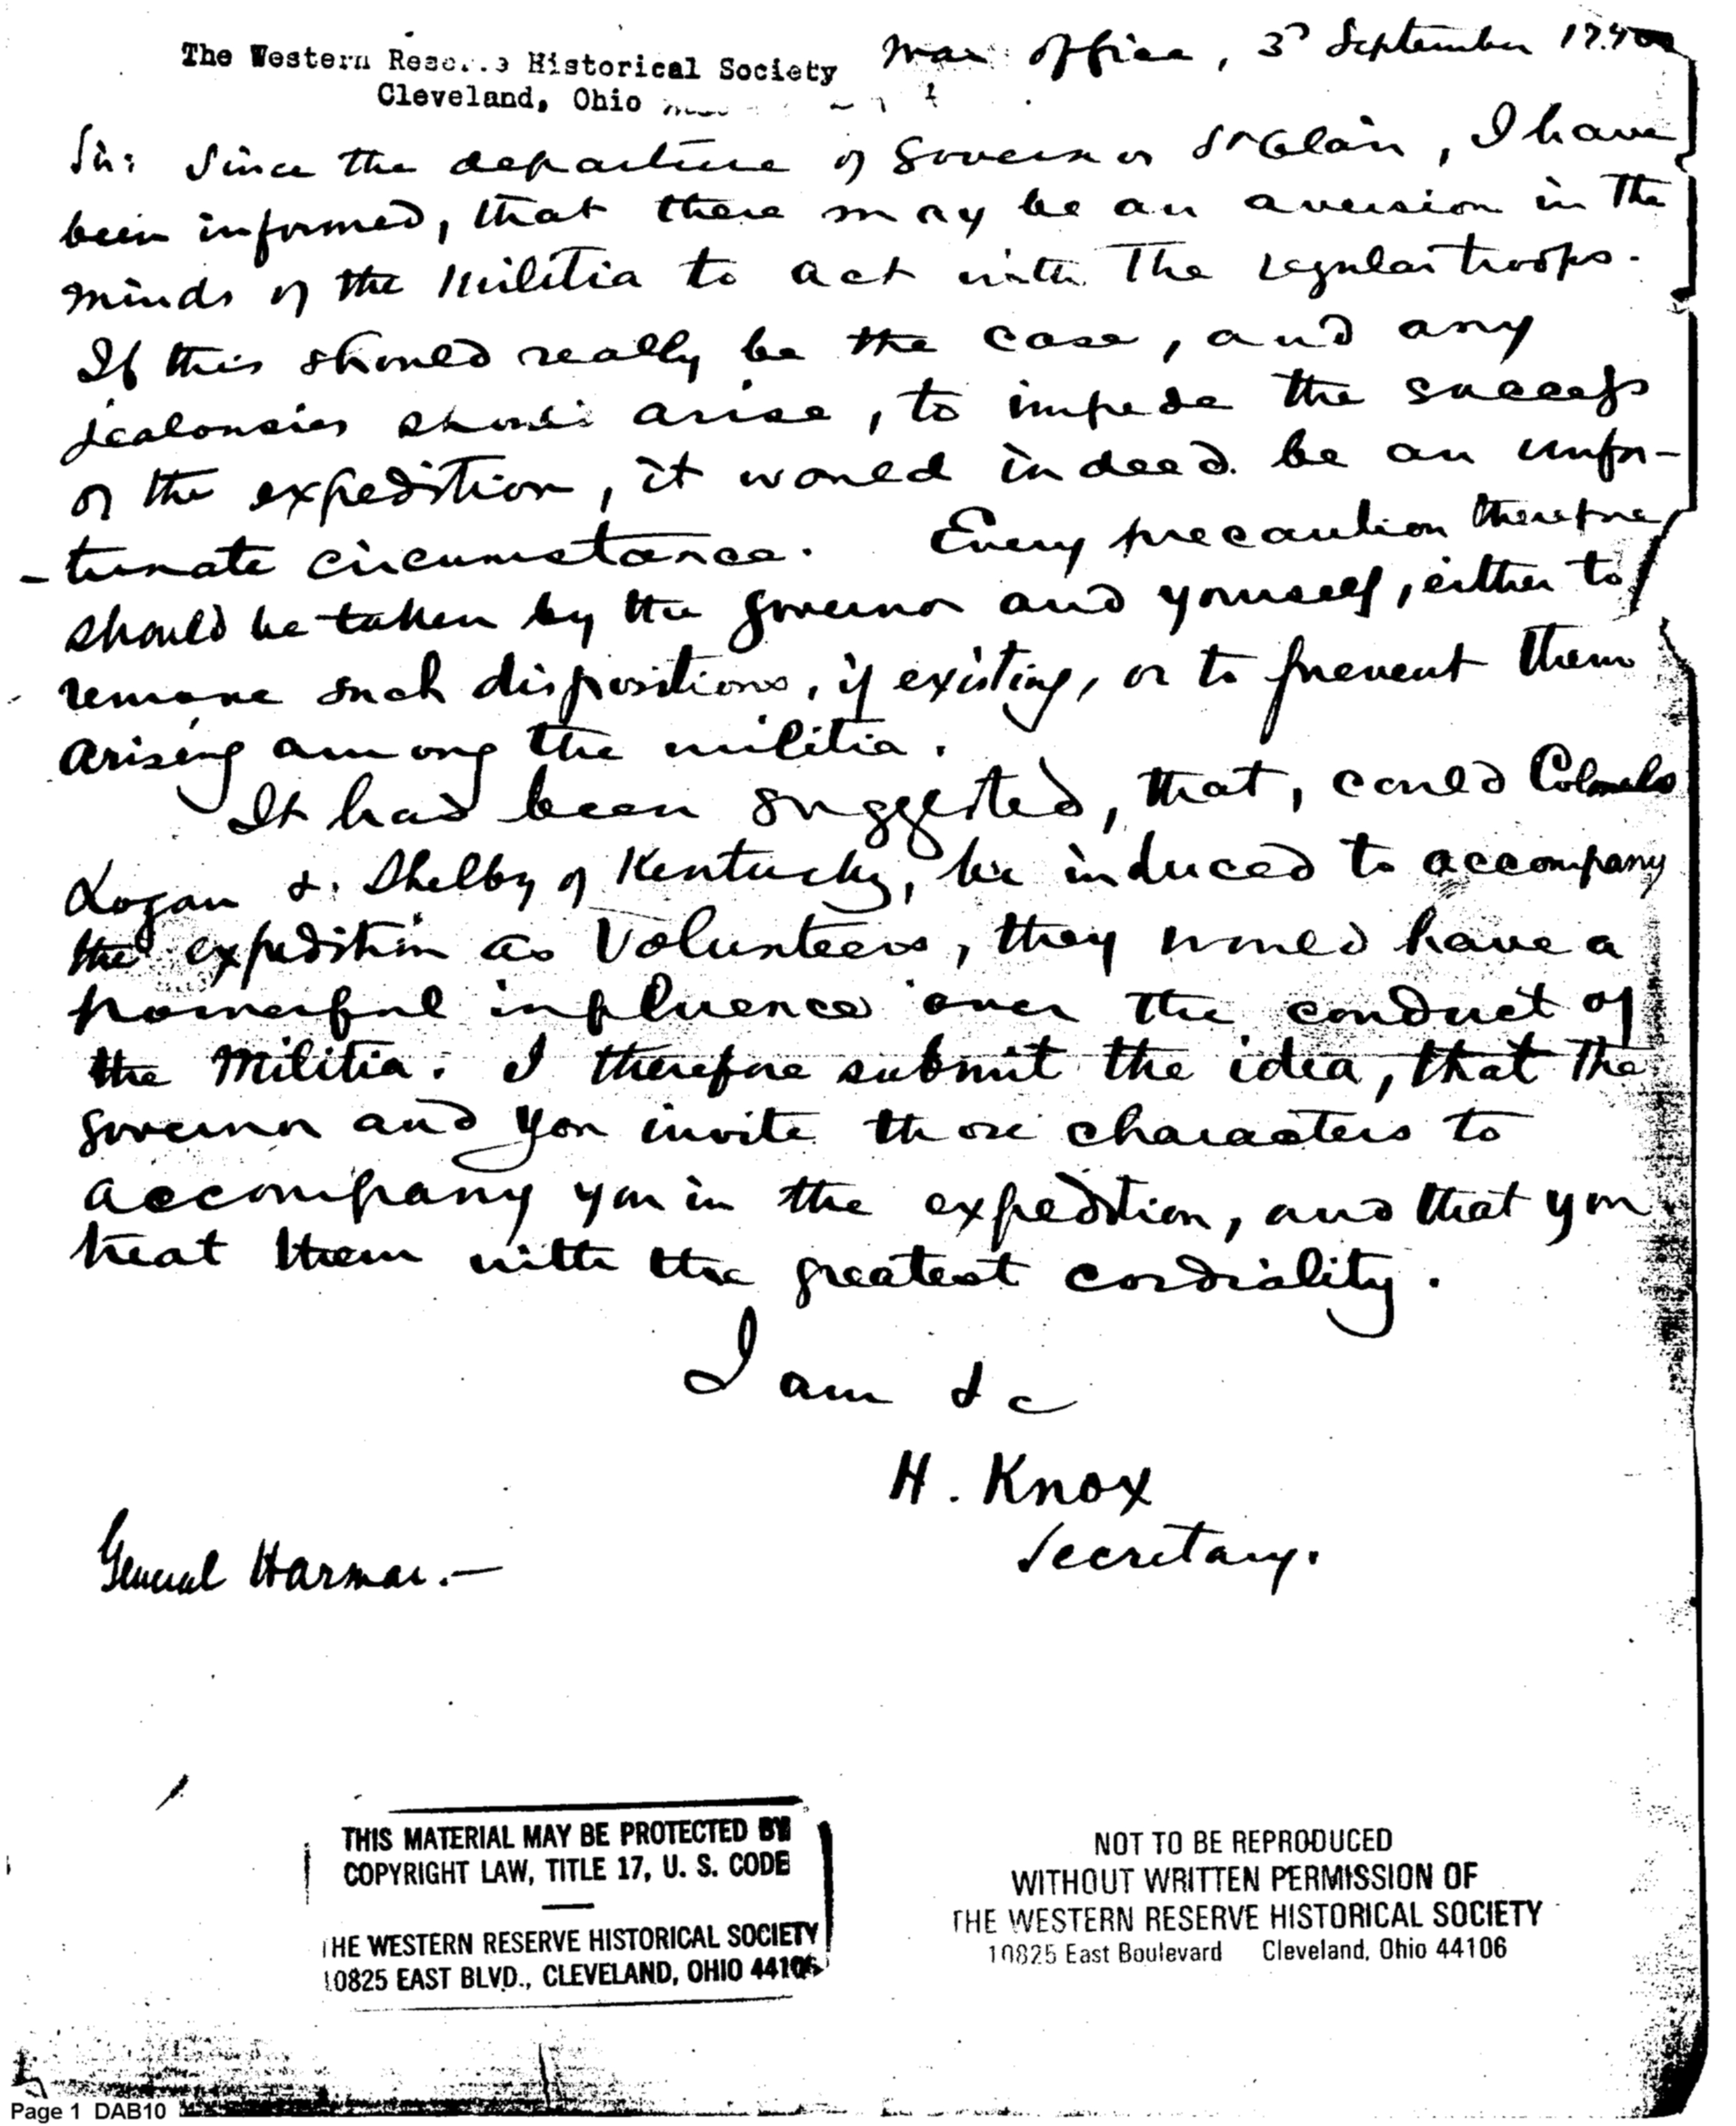 The Western Reserve Historical Society
Cleveland, Ohio
War office, 3d September 1790
Sir: Since the departure of Governor St Clair, I have
been informed, that there may be an aversion in the
minds of the Militia to act with the regular troops.
If this should really be the case, and any
jealousies should arise, to impede the success
of the expedition, it would indeed be an unfor-
-tunate circumstance. Every precaution therefore
should be taken by the governor and yourself, either to
remove such dispositions, if existing, or to prevent them
arising among the militia.
It has been suggested, that, could Colonels
Logan & Shelby of Kentucky, be induced to accompany
the expedition as Volunteers, they would have a
powerful influence over the conduct of
the Militia. I therefore submit the idea, that the
governor and you invite those characters to
accompany you in the expedition, and that you
treat them with the greatest cordiality.
I am &c
H. Knox
Secretary.
General Harmar.—
THIS MATERIAL MAY BE PROTECTED BY
COPYRIGHT LAW, TITLE 17, U. S. CODE
THE WESTERN RESERVE HISTORICAL SOCIETY
10825 EAST BLVD., CLEVELAND, OHIO 44106
NOT TO BE REPRODUCED
WITHOUT WRITTEN PERMISSION OF
THE WESTERN RESERVE HISTORICAL SOCIETY
10825 East Boulevard Cleveland, Ohio 44106
Page 1 DAB10